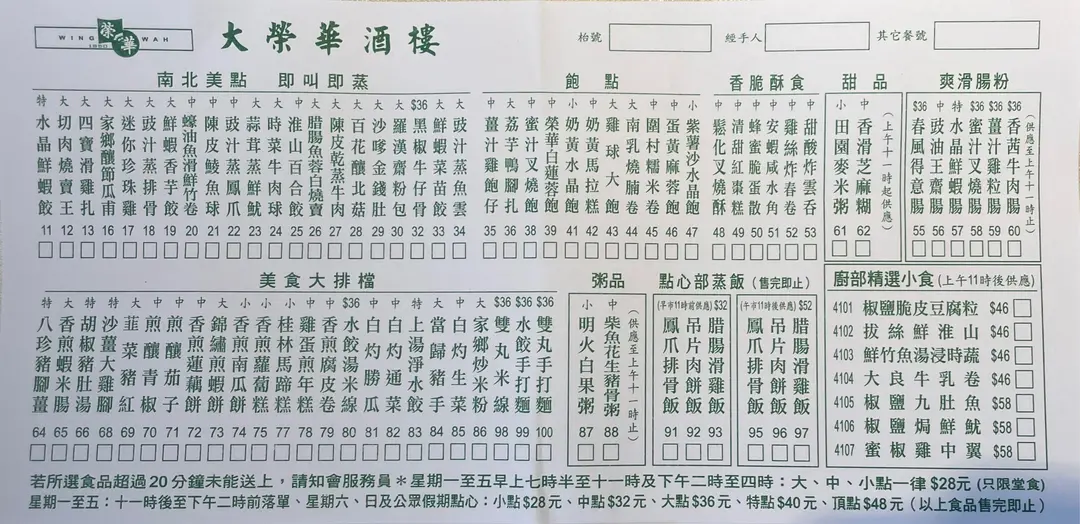 WING WAH
榮華
1950
大榮華酒樓
枱號
經手人
其它餐號
南北美點 即叫即蒸
特 水晶鮮蝦餃 11
大 切肉燒賣王 12
大 四寶滑雞扎 13
大 家鄉釀節瓜甫 16
大 迷你珍珠雞 17
大 豉汁蒸排骨 18
中 鮮蝦香芋餃 19
中 蠔油魚滑鮮竹卷 20
中 陳皮鯪魚球 21
中 豉汁蒸鳳爪 22
大 蒜茸蒸鮮魷 23
大 時菜牛肉球 24
中 淮山百合餃 25
大 腊腸魚蓉白燒賣 26
大 陳皮乾蒸牛肉 27
大 百花釀北菇 28
大 沙嗲金錢肚 29
大 羅漢齋粉包 30
$36 黑椒牛仔骨 32
大 鮮蝦菜苗餃 33
大 豉汁蒸魚雲 34
飽點
中 薑汁雞飽仔 35
大 荔芋鴨腳扎 36
中 蜜汁叉燒飽 38
中 榮華白蓮蓉飽 39
小 奶黃水晶飽 41
小 奶黃馬拉糕 42
大 雞球大飽 43
大 南乳燒腩卷 44
中 圍村糯米卷 45
中 蛋黃麻蓉飽 46
小 紫薯沙水晶飽 47
香脆酥食
中 鬆化叉燒酥 48
小 清甜紅棗糕 49
中 蜂蜜脆蛋散 50
中 安蝦咸水角 51
中 雞絲炸春卷 52
中 甜酸炸雲吞 53
甜品
小 田園麥米粥 61
中 香滑芝麻糊 62
(上午十一時起供應)
爽滑腸粉
$36 春風得意腸 55
中 豉油王齋腸 56
特 水晶鮮蝦腸 57
$36 蜜汁叉燒腸 58
$36 薑汁雞粒腸 59
$36 香茜牛肉腸 60
(供應至上午十一時止)
美食大排檔
特 八珍豬腳薑 64
大 香煎蝦米腸 65
特 胡椒豬肚湯 66
特 沙薑大雞腳 68
小 韮菜豬紅 69
大 煎釀青椒 70
中 煎釀茄子 71
中 香煎蓮藕餅 72
大 錦繡煎蝦餅 73
小 香煎南瓜餅 74
小 香煎蘿蔔糕 75
小 桂林馬蹄糕 77
中 雞蛋煎年糕 78
中 香煎腐皮卷 79
$36 水餃湯米線 80
大 白灼勝瓜 81
中 白灼通菜 82
特 上湯淨水餃 83
大 當歸豬手 84
中 白灼生菜 85
大 家鄉炒米粉 86
$36 雙丸米線 98
$36 水餃手打麵 99
$36 雙丸手打麵 100
粥品
小 明火白果粥 87
中 柴魚花生豬骨粥 88
(供應至上午十一時止)
點心部蒸飯 (售完即止)
(早市11時前供應) $32
鳳爪排骨飯 91
吊片肉餅飯 92
腊腸滑雞飯 93
(午市11時後供應) $52
鳳爪排骨飯 95
吊片肉餅飯 96
腊腸滑雞飯 97
廚部精選小食 (上午11時後供應)
4101 椒鹽脆皮豆腐粒 $46
4102 拔絲鮮淮山 $46
4103 鮮竹魚湯浸時蔬 $46
4104 大良牛乳卷 $46
4105 椒鹽九肚魚 $58
4106 椒鹽焗鮮魷 $58
4107 蜜椒雞中翼 $58
若所選食品超過20分鐘未能送上，請知會服務員＊星期一至五早上七時半至十一時及下午二時至四時：大、中、小點一律 $28元 (只限堂食)
星期一至五：十一時後至下午二時前落單、星期六、日及公眾假期點心：小點$28元、中點$32元、大點$36元、特點$40元、頂點$48元 (以上食品售完即止)